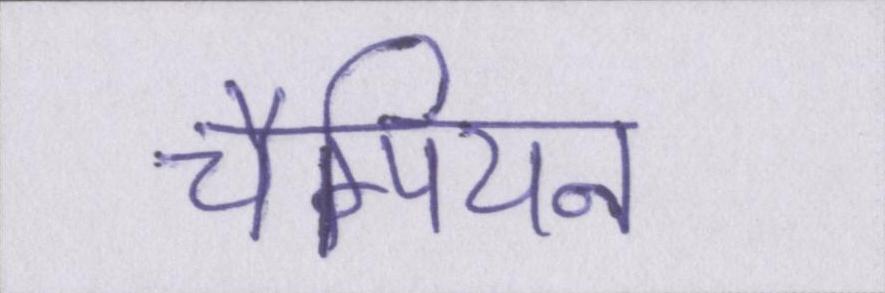 चैम्पियन